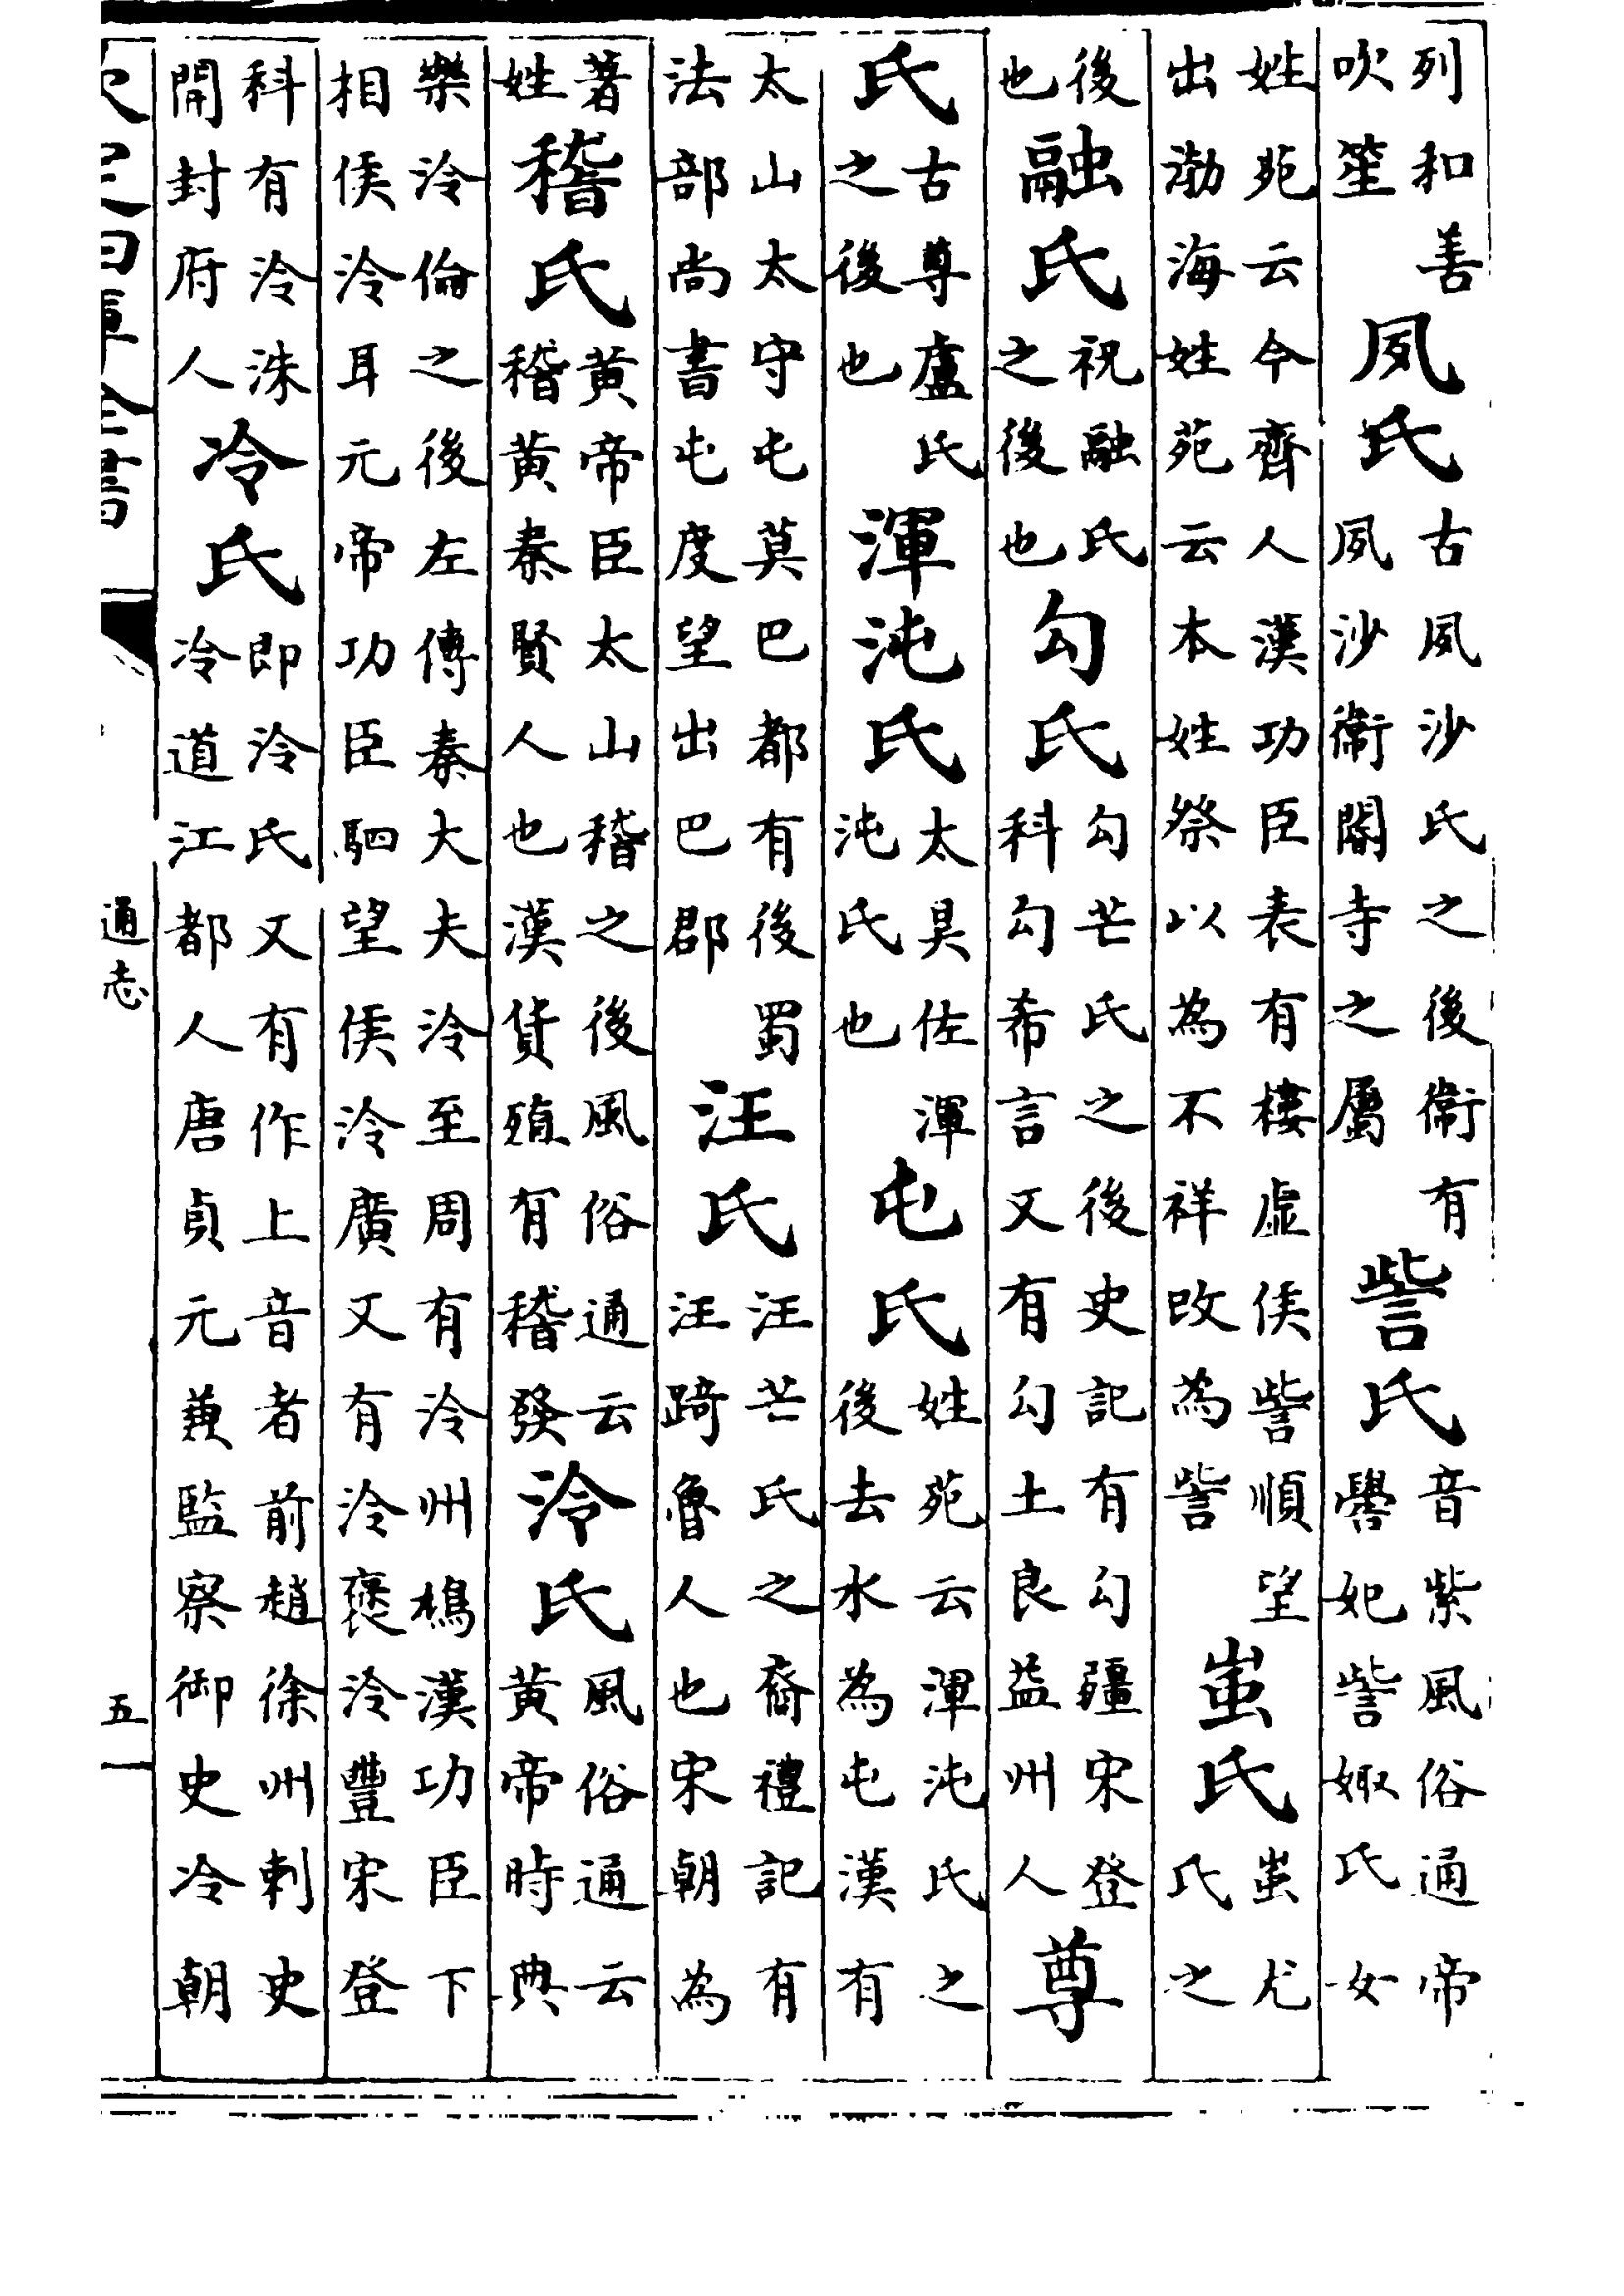 列和善吹笙夙氏古夙沙氏之後衛有夙沙衛閽寺之屬訾氏音紫風俗通帝嚳妃訾娵氏女
姓苑云今齊人漢功臣表有棲虛侯訾順望出渤海姓苑云本姓祭以為不祥改為訾蚩氏蚩尤氏之
後也融氏祝融氏之後也勾氏勾芒氏之後史記有勾疆宋登科勾希言又有勾士良益州人尊
氏古尊盧氏之後也渾沌氏太昊佐渾沌氏也屯氏姓苑云渾沌氏之後去水為屯漢有
太山太守屯莫巴都有後蜀法部尚書屯度望出巴郡汪氏汪芒氏之裔禮記有汪踦魯人也宋朝為
著姓稽氏黄帝臣太山稽之後風俗通云稽黄秦賢人也漢貨殖有稽發泠氏風俗通云黄帝時典
樂泠倫之後左傳秦大夫泠至周有泠州鳩漢功臣下相侯泠耳元帝功臣駟望侯泠廣又有泠褒泠豐宋登
科有泠洙開封府人冷氏即泠氏又有作上音者前趙徐州刺史冷道江都人唐貞元兼監察御史冷朝
欽定四庫全書
通志
五一